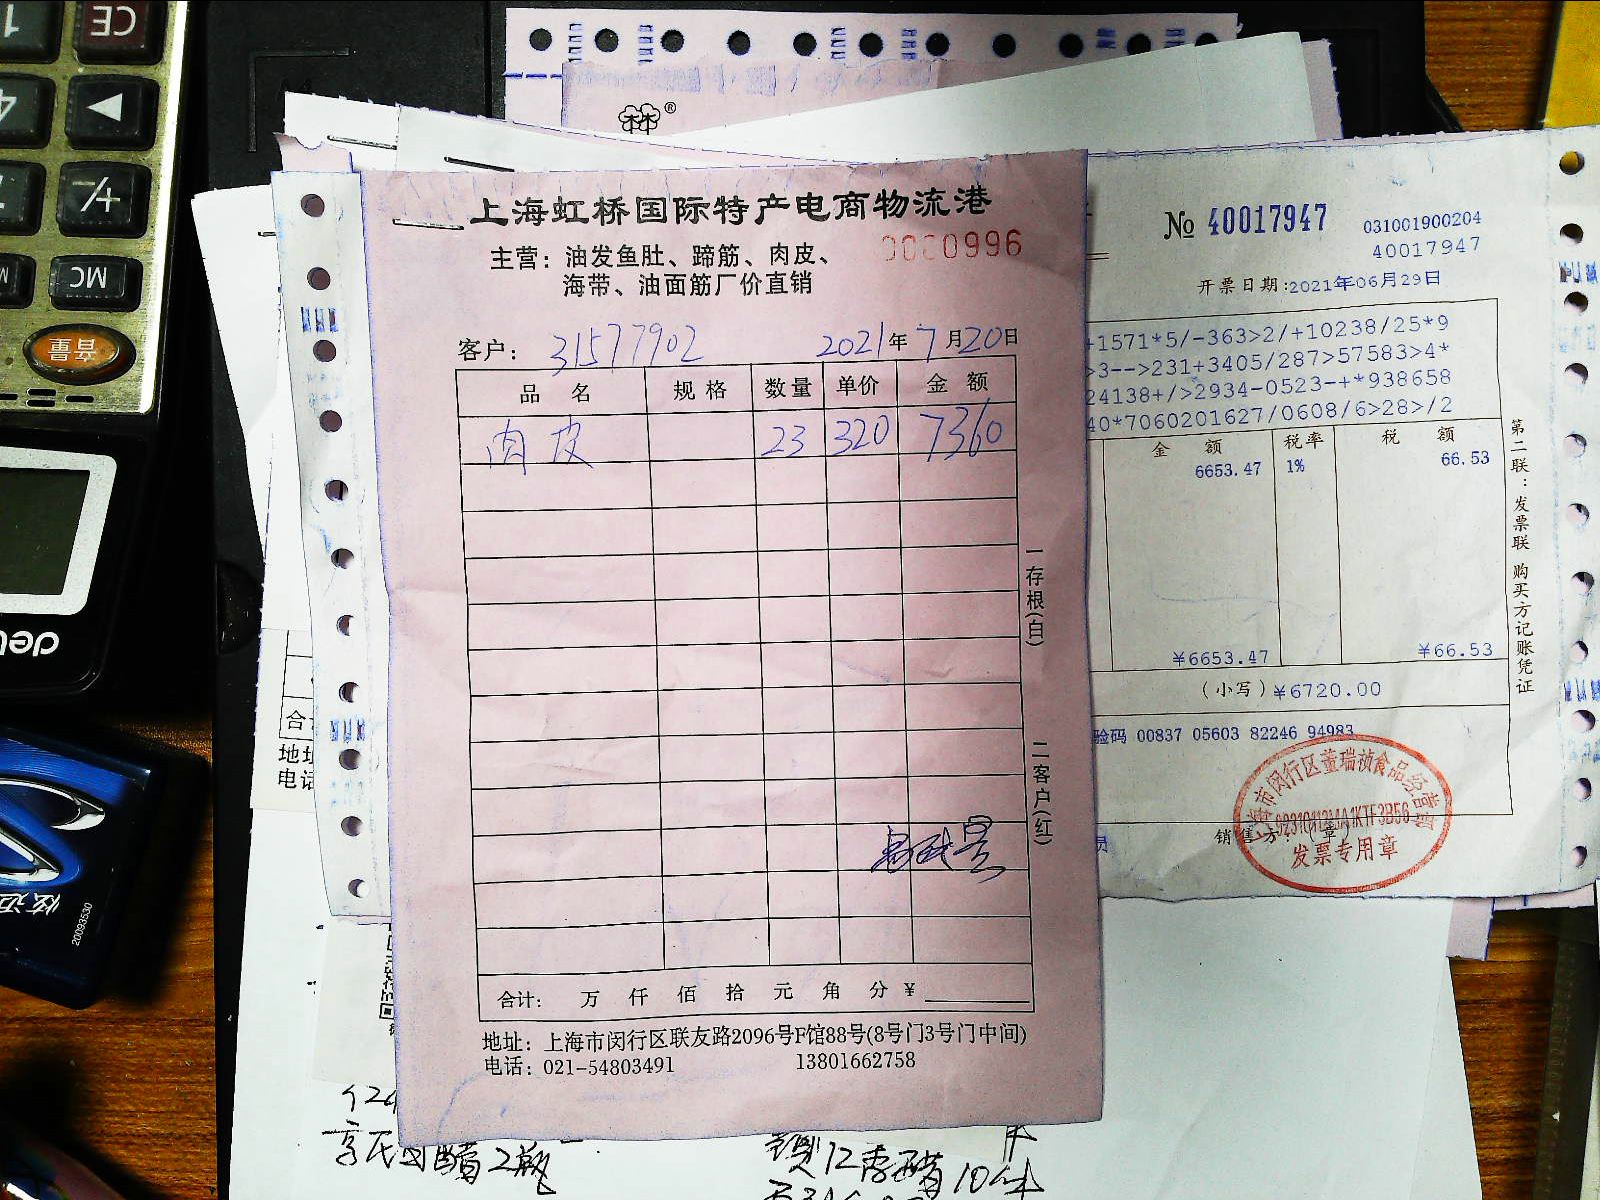 CE
MC
音量
炫迈
20093530
上海虹桥国际特产电商物流港
主营：油发鱼肚、蹄筋、肉皮、
海带、油面筋厂价直销
0000996
客户：31577902 2021年7月20日
品名 规格 数量 单价 金额
肉皮 23 320 7360
一存根(白)
二客户(红)
合计： 万 仟 佰 拾 元 角 分 ¥
地址：上海市闵行区联友路2096号F馆88号(8号门3号门中间)
电话：021-54803491 13801662758
№ 40017947
031001900204
40017947
开票日期:2021年06月29日
+1571*5/-363>2/+10238/25*9
>3-->231+3405/287>57583>4*
24138+/>2934-0523-+*938658
40*7060201627/0608/6>28>/2
金额 税率 税额
6653.47 1% 66.53
¥6653.47 ¥66.53
(小写)¥6720.00
验码 00837 05603 82246 94983
第二联：发票联 购买方记账凭证
销售方：章
市闵行区董瑞祯食品经营部
发票专用章
地址
电话
2瓶
10